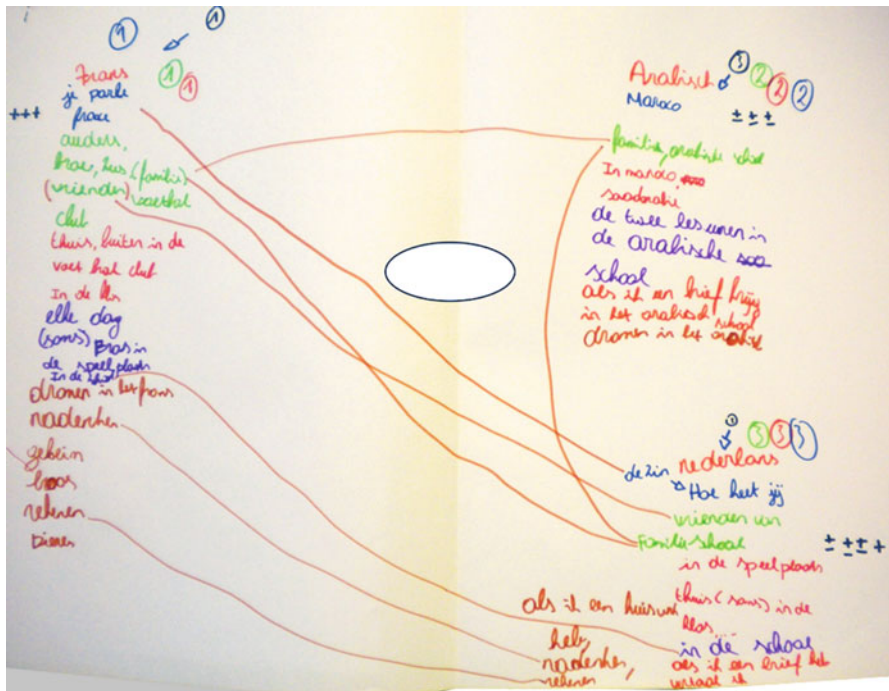 1 1
Frans 1 1
je parle
+++ frans
ouders,
broer, zus (familie)
(vrienden) voetbal
club
thuis, buiten in de
voet bal club
In de les
elke dag
(soms) Frans in
de speelplaats
In de school
dromen in het frans
nadenken
geheim
boos
rekenen
Dieren
Arabisch 3 2 2 2
Maroco ± ± ±
familie, arabische school
In maroco,
de twee lesuren in
de arabische
school
als ik een brief krijg
in het arabisch school
dromen in het arabisch
1 3 3 3
de zin nederlans
Hoe heet jij
vrienden van
Familie-school ± ± ± +
in de speelplaats
thuis (soms) in de
klas
in de school
als ik een brief heb
als ik een huiswerk
heb,
nadenken,
rekenen